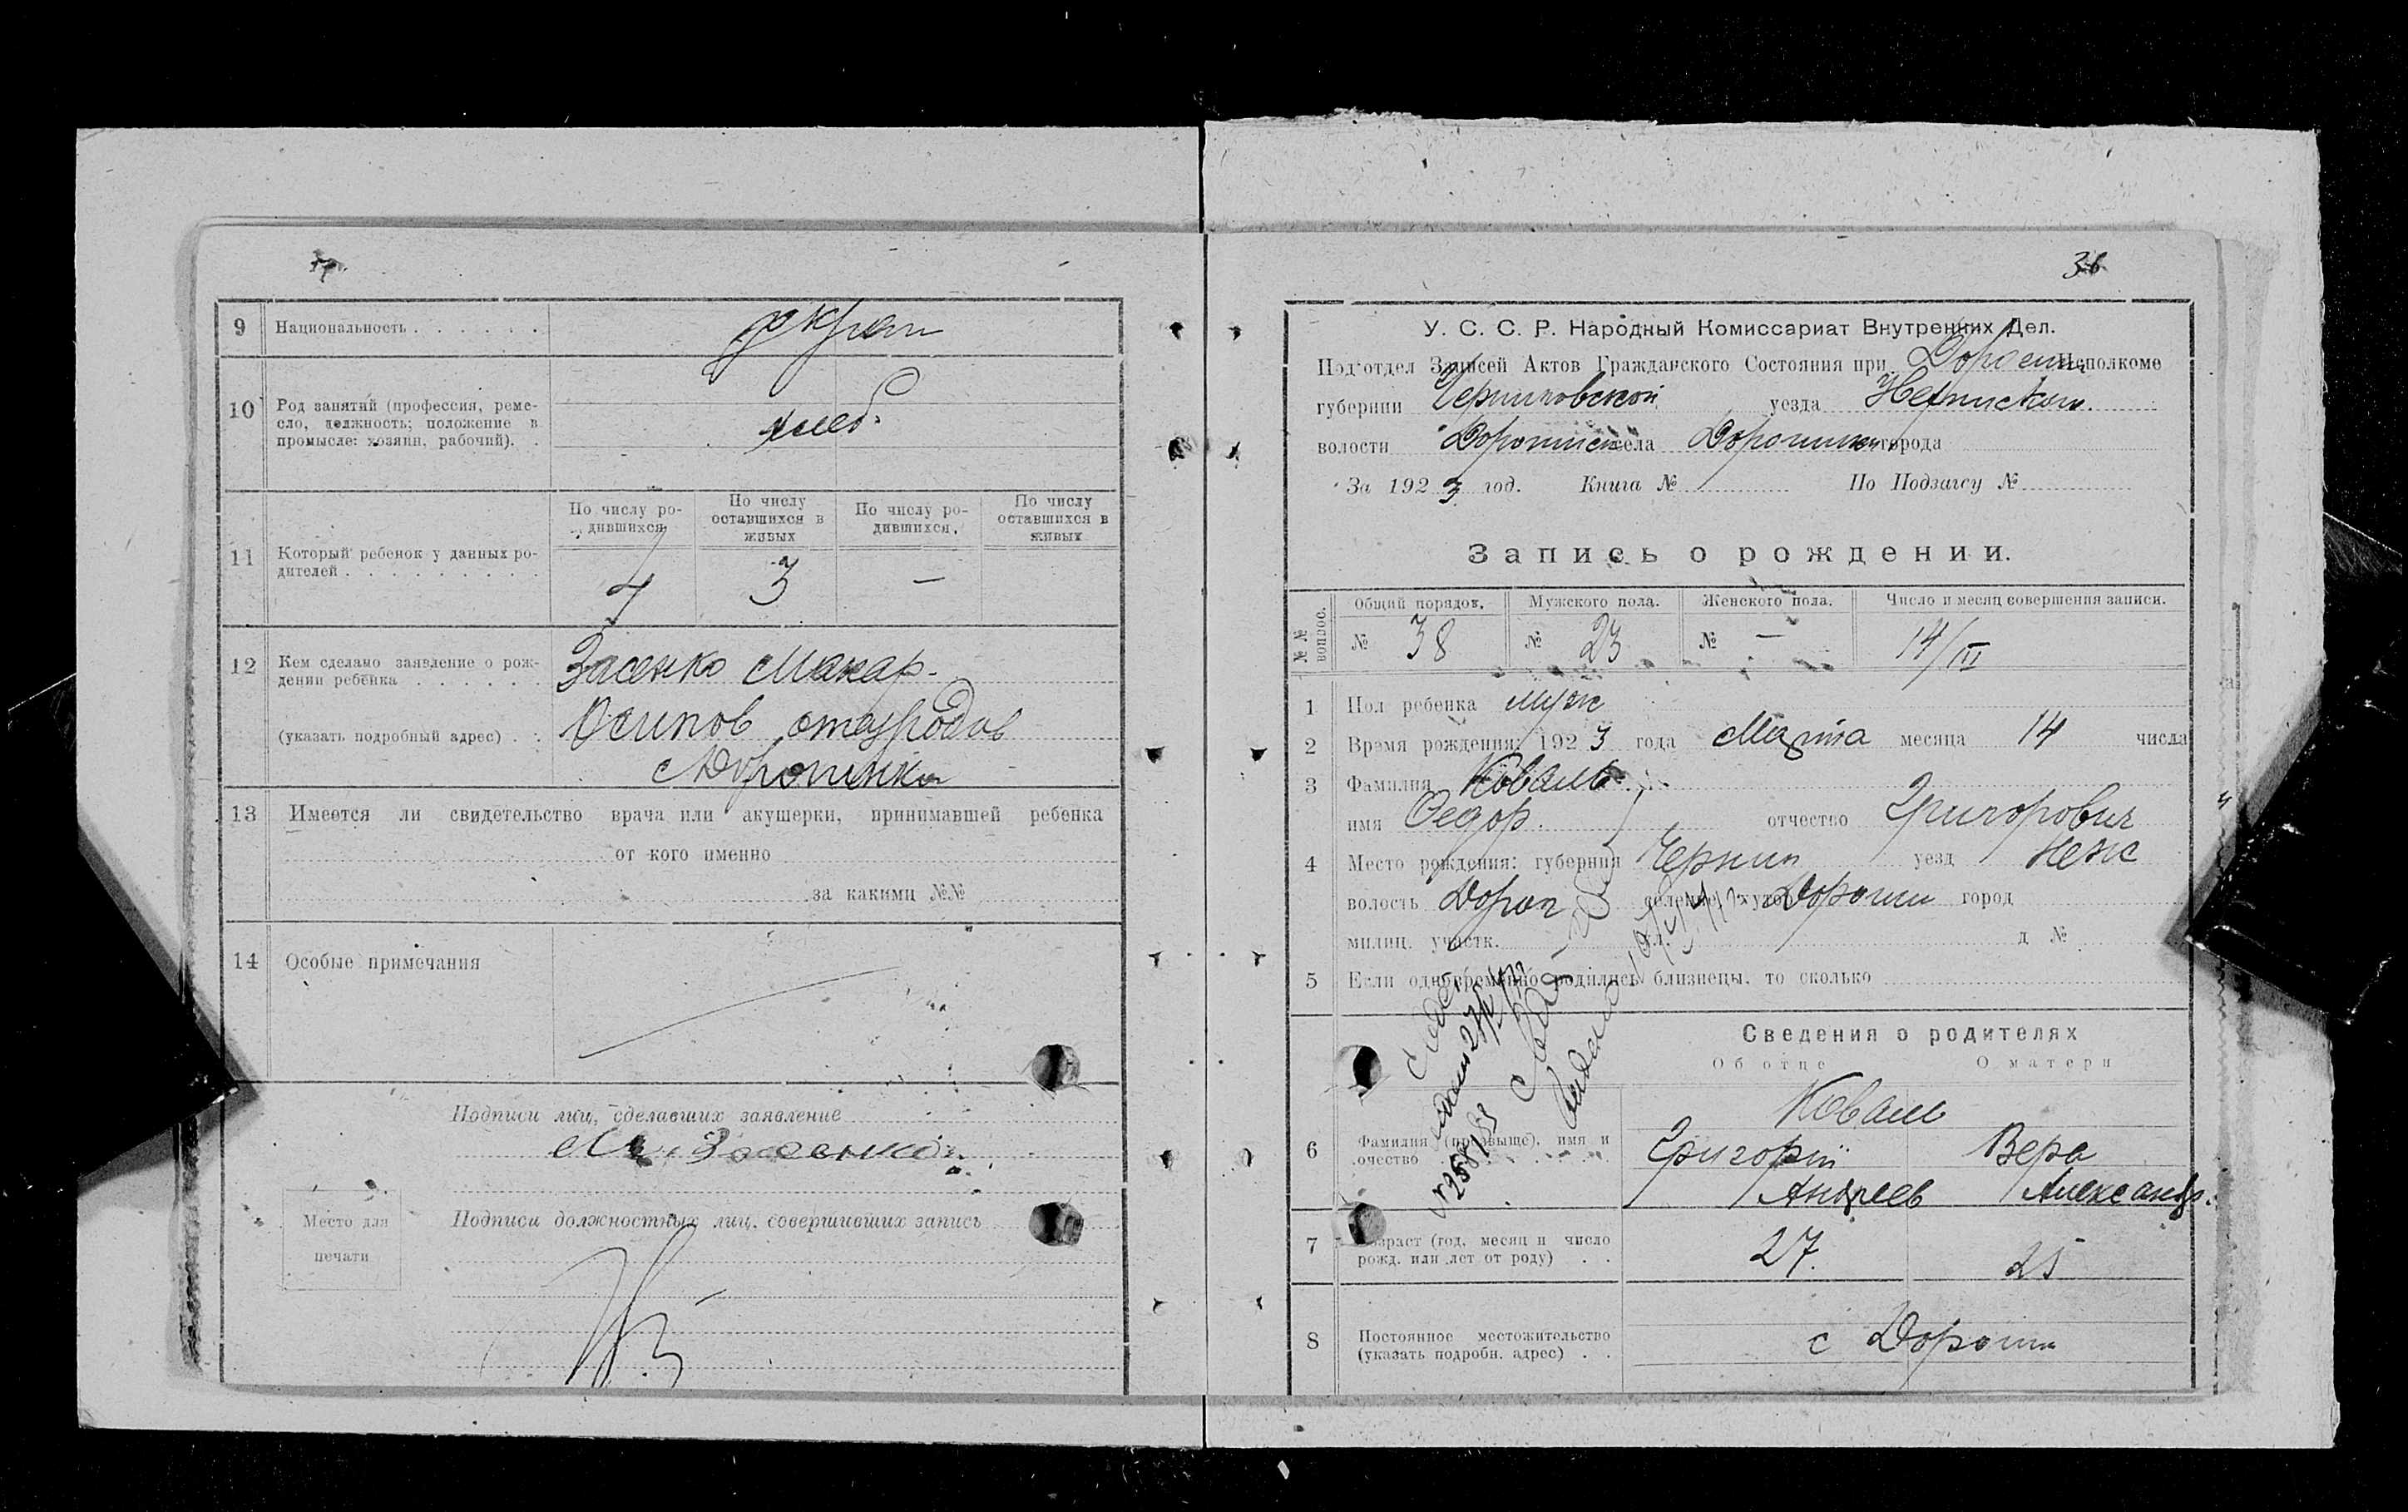 9 Национальность . . . . . . украін
10 Род занятий (профессия, реме-
сло, должность; положение в
промысле: хозяин, рабочий). .
хлеб.
По числу ро-
дившихся
По числу
оставшихся в
живых
По числу ро-
дившихся.
По числу
оставшихся в
живых
11 Который ребенок у данных ро-
дителей . . . . . . . . .
4 3 —
12 Кем сделано заявление о рож-
дении ребенка . . . . . .
Засенко Макар
(указать подробный адрес) . .
Осипов
13 Имеется ли свидетельство врача или акушерки, принимавшей ребенка
от кого именно
за какими №№
14 Особые примечания
Подписи лиц, сделавших заявление
М. Засенко
Место для
печати
Подписи должностных лиц, совершивших запись
36
У. С. С. Р. Народный Комиссариат Внутренних Дел.
Подотдел Записей Актов Гражданского Состояния при Исполкоме
губернии Черниговской уезда
волости села города
За 1923 год. Книга № По Подзагсу №
Запись о рождении.
№№ вопрос.
Общий порядов. Мужского пола. Женского пола. Число и месяц совершения записи.
№ 38 № 23 № — 14/III
1 Пол ребенка муж
2 Время рождения: 1923 года Марта месяца 14 числа
3 Фамилия Коваль
имя Федор. отчество Григорович
4 Место рождения: губерния Чернип уезд Неж
волость Дороп город
милиц. участк. ул. д №
5 Если одновременно родились близнецы, то сколько
Сведения о родителях
Об отце О матери
Коваль
6 Фамилия (прозвище), имя и
отчество
Григорій Вера
Андреев Александр.
7 Возраст (год, месяц и число
рожд. или лет от роду) . .
27. 25
8 Постоянное местожительство
(указать подробн. адрес) . .